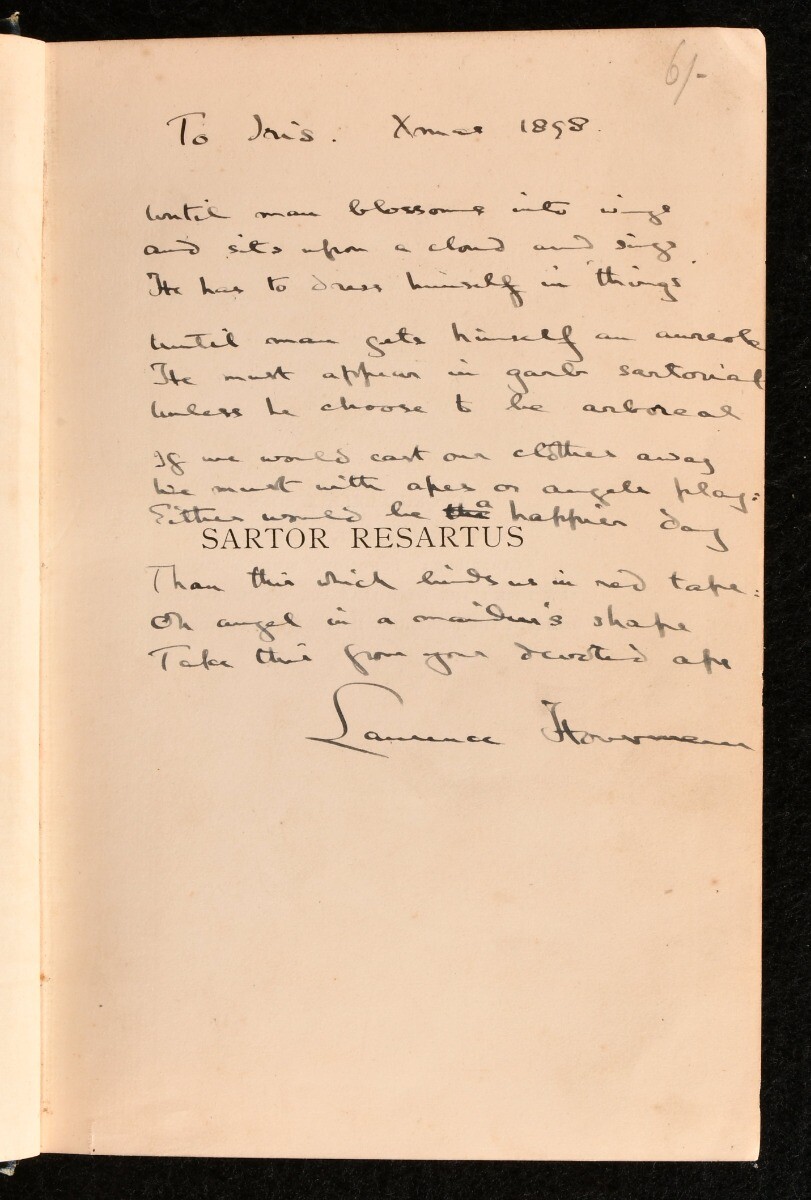 6/-
To Iris. Xmas 1898.
Until man blossoms into wings
and sits upon a cloud and sings
He has to dress himself in 'things'
Until man gets himself an aureole
He must appear in garb sartorial
Unless he choose to be arboreal
If we would cast our clothes away
We must with apes or angels play:
Either would be the a happier day
SARTOR RESARTUS
Than this which binds us in red tape:
Oh angel in a maiden's shape
Take this from your devoted ape
Laurence Housman